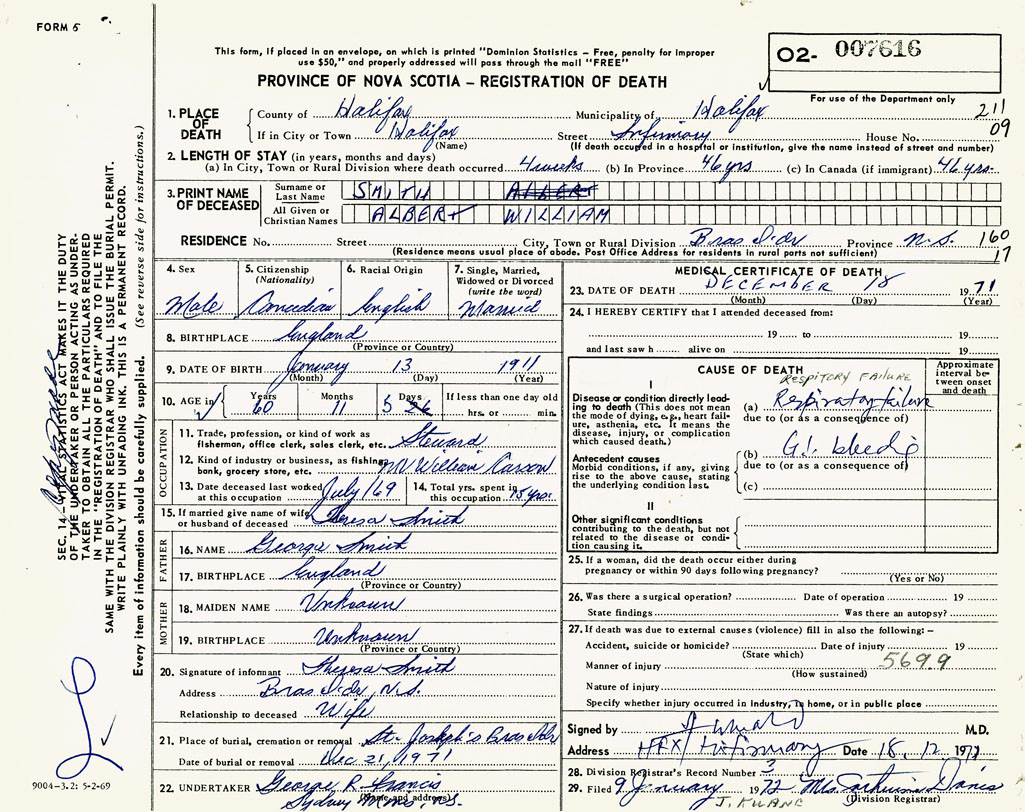 FORM 5
This form, if placed in an envelope, on which is printed "Dominion Statistics – Free, penalty for improper
use $50," and properly addressed will pass through the mail "FREE"
PROVINCE OF NOVA SCOTIA – REGISTRATION OF DEATH
02- 007616
For use of the Department only
1. PLACE OF DEATH County of Halifax Municipality of Halifax 211
If in City or Town Halifax Street Infirmary House No. 09
(Name) (If death occured in a hospital or institution, give the name instead of street and number)
2. LENGTH OF STAY (in years, months and days)
(a) In City, Town or Rural Division where death occurred 4 weeks (b) In Province 46 yrs (c) In Canada (if immigrant) 46 yrs.
3. PRINT NAME OF DECEASED Surname or Last Name SMITH ALBERT
All Given or Christian Names ALBERT WILLIAM
RESIDENCE No. Street City, Town or Rural Division Bras d'or Province N.S. 160
(Residence means usual place of abode. Post Office Address for residents in rural parts not sufficient) 17
4. Sex Male
5. Citizenship (Nationality) Canadian
6. Racial Origin English
7. Single, Married, Widowed or Divorced (write the word) Married
8. BIRTHPLACE England
(Province or Country)
9. DATE OF BIRTH January 13 1911
(Month) (Day) (Year)
10. AGE in Years 60 Months 11 Days 5 26 If less than one day old hrs. or min.
OCCUPATION
11. Trade, profession, or kind of work as
fisherman, office clerk, sales clerk, etc. Steward
12. Kind of industry or business, as fishing,
bank, grocery store, etc. MV William Carson
13. Date deceased last worked
at this occupation July/69
14. Total yrs. spent in
this occupation 15 yrs.
15. If married give name of wife
or husband of deceased Theresa Smith
FATHER
16. NAME George Smith
17. BIRTHPLACE England
(Province or Country)
MOTHER
18. MAIDEN NAME Unknown
19. BIRTHPLACE Unknown
(Province or Country)
20. Signature of informant Theresa Smith
Address Bras d'or, N.S.
Relationship to deceased Wife
21. Place of burial, cremation or removal St. Joseph's Bras d'or
Date of burial or removal Dec 21, 1971
22. UNDERTAKER George R. Francis
(Name and address) Sydney Mines N.S.
MEDICAL CERTIFICATE OF DEATH
23. DATE OF DEATH DECEMBER 18 1971
(Month) (Day) (Year)
24. I HEREBY CERTIFY that I attended deceased from:
19 to 19
and last saw h alive on 19
CAUSE OF DEATH
Approximate interval between onset and death
I
RESPITORY FAILURE
Disease or condition directly leading to death (This does not mean the mode of dying, e.g., heart failure, asthenia, etc. It means the disease, injury, or complication which caused death.)
(a) Respiratory failure
due to (or as a consequence of)
Antecedent causes
Morbid conditions, if any, giving rise to the above cause, stating the underlying condition last.
(b) G.I. bleeding
due to (or as a consequence of)
(c)
II
Other significant conditions
contributing to the death, but not related to the disease or condition causing it.
25. If a woman, did the death occur either during
pregnancy or within 90 days following pregnancy?
(Yes or No)
26. Was there a surgical operation? Date of operation 19
State findings Was there an autopsy?
27. If death was due to external causes (violence) fill in also the following: –
Accident, suicide or homicide? Date of injury 19
(State which)
Manner of injury 569.9
(How sustained)
Nature of injury
Specify whether injury occurred in Industry, in home, or in public place
Signed by M.D.
Address HFX Infirmary Date 18.12 1971
28. Division Registrar's Record Number 3
29. Filed 9 January 1972 Mrs. Davis
(Division Registrar)
J. KWANG
SEC. 14 – VITAL STATISTICS ACT MAKES IT THE DUTY
OF THE UNDERTAKER OR PERSON ACTING AS UNDER-
TAKER TO OBTAIN ALL THE PARTICULARS REQUIRED
IN THE "REGISTRATION OF DEATH" AND TO FILE THE
SAME WITH THE DIVISION REGISTRAR WHO SHALL ISSUE THE BURIAL PERMIT.
WRITE PLAINLY WITH UNFADING INK. THIS IS A PERMANENT RECORD.
Every item of information should be carefully supplied. (See reverse side for instructions.)
9004-3.2: 5-2-69